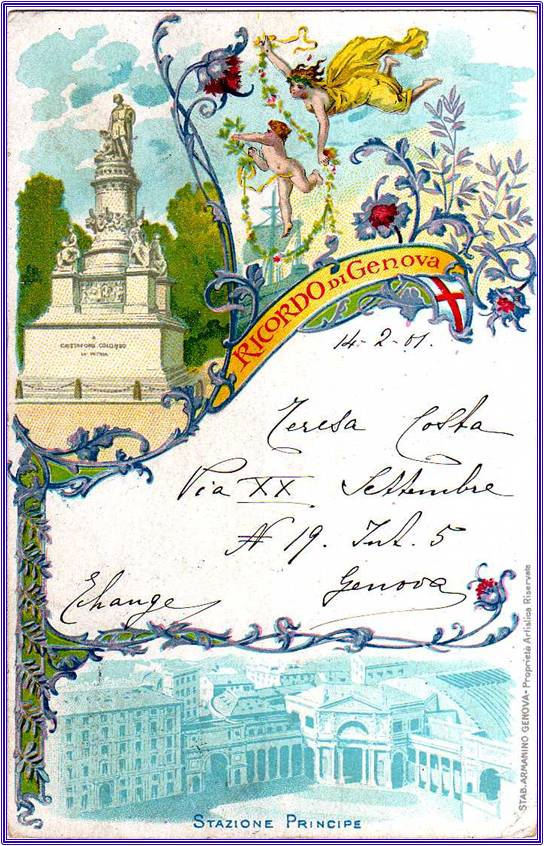 RICORDO DI GENOVA
A
CRISTOFORO COLOMBO
LA PATRIA
14-2-01.
Teresa Costa
Via XX Settembre
N 19. Int. 5
Genova
Echange
STAZIONE PRINCIPE
STAB. ARMANINO GENOVA - Proprietà Artistica Riservata